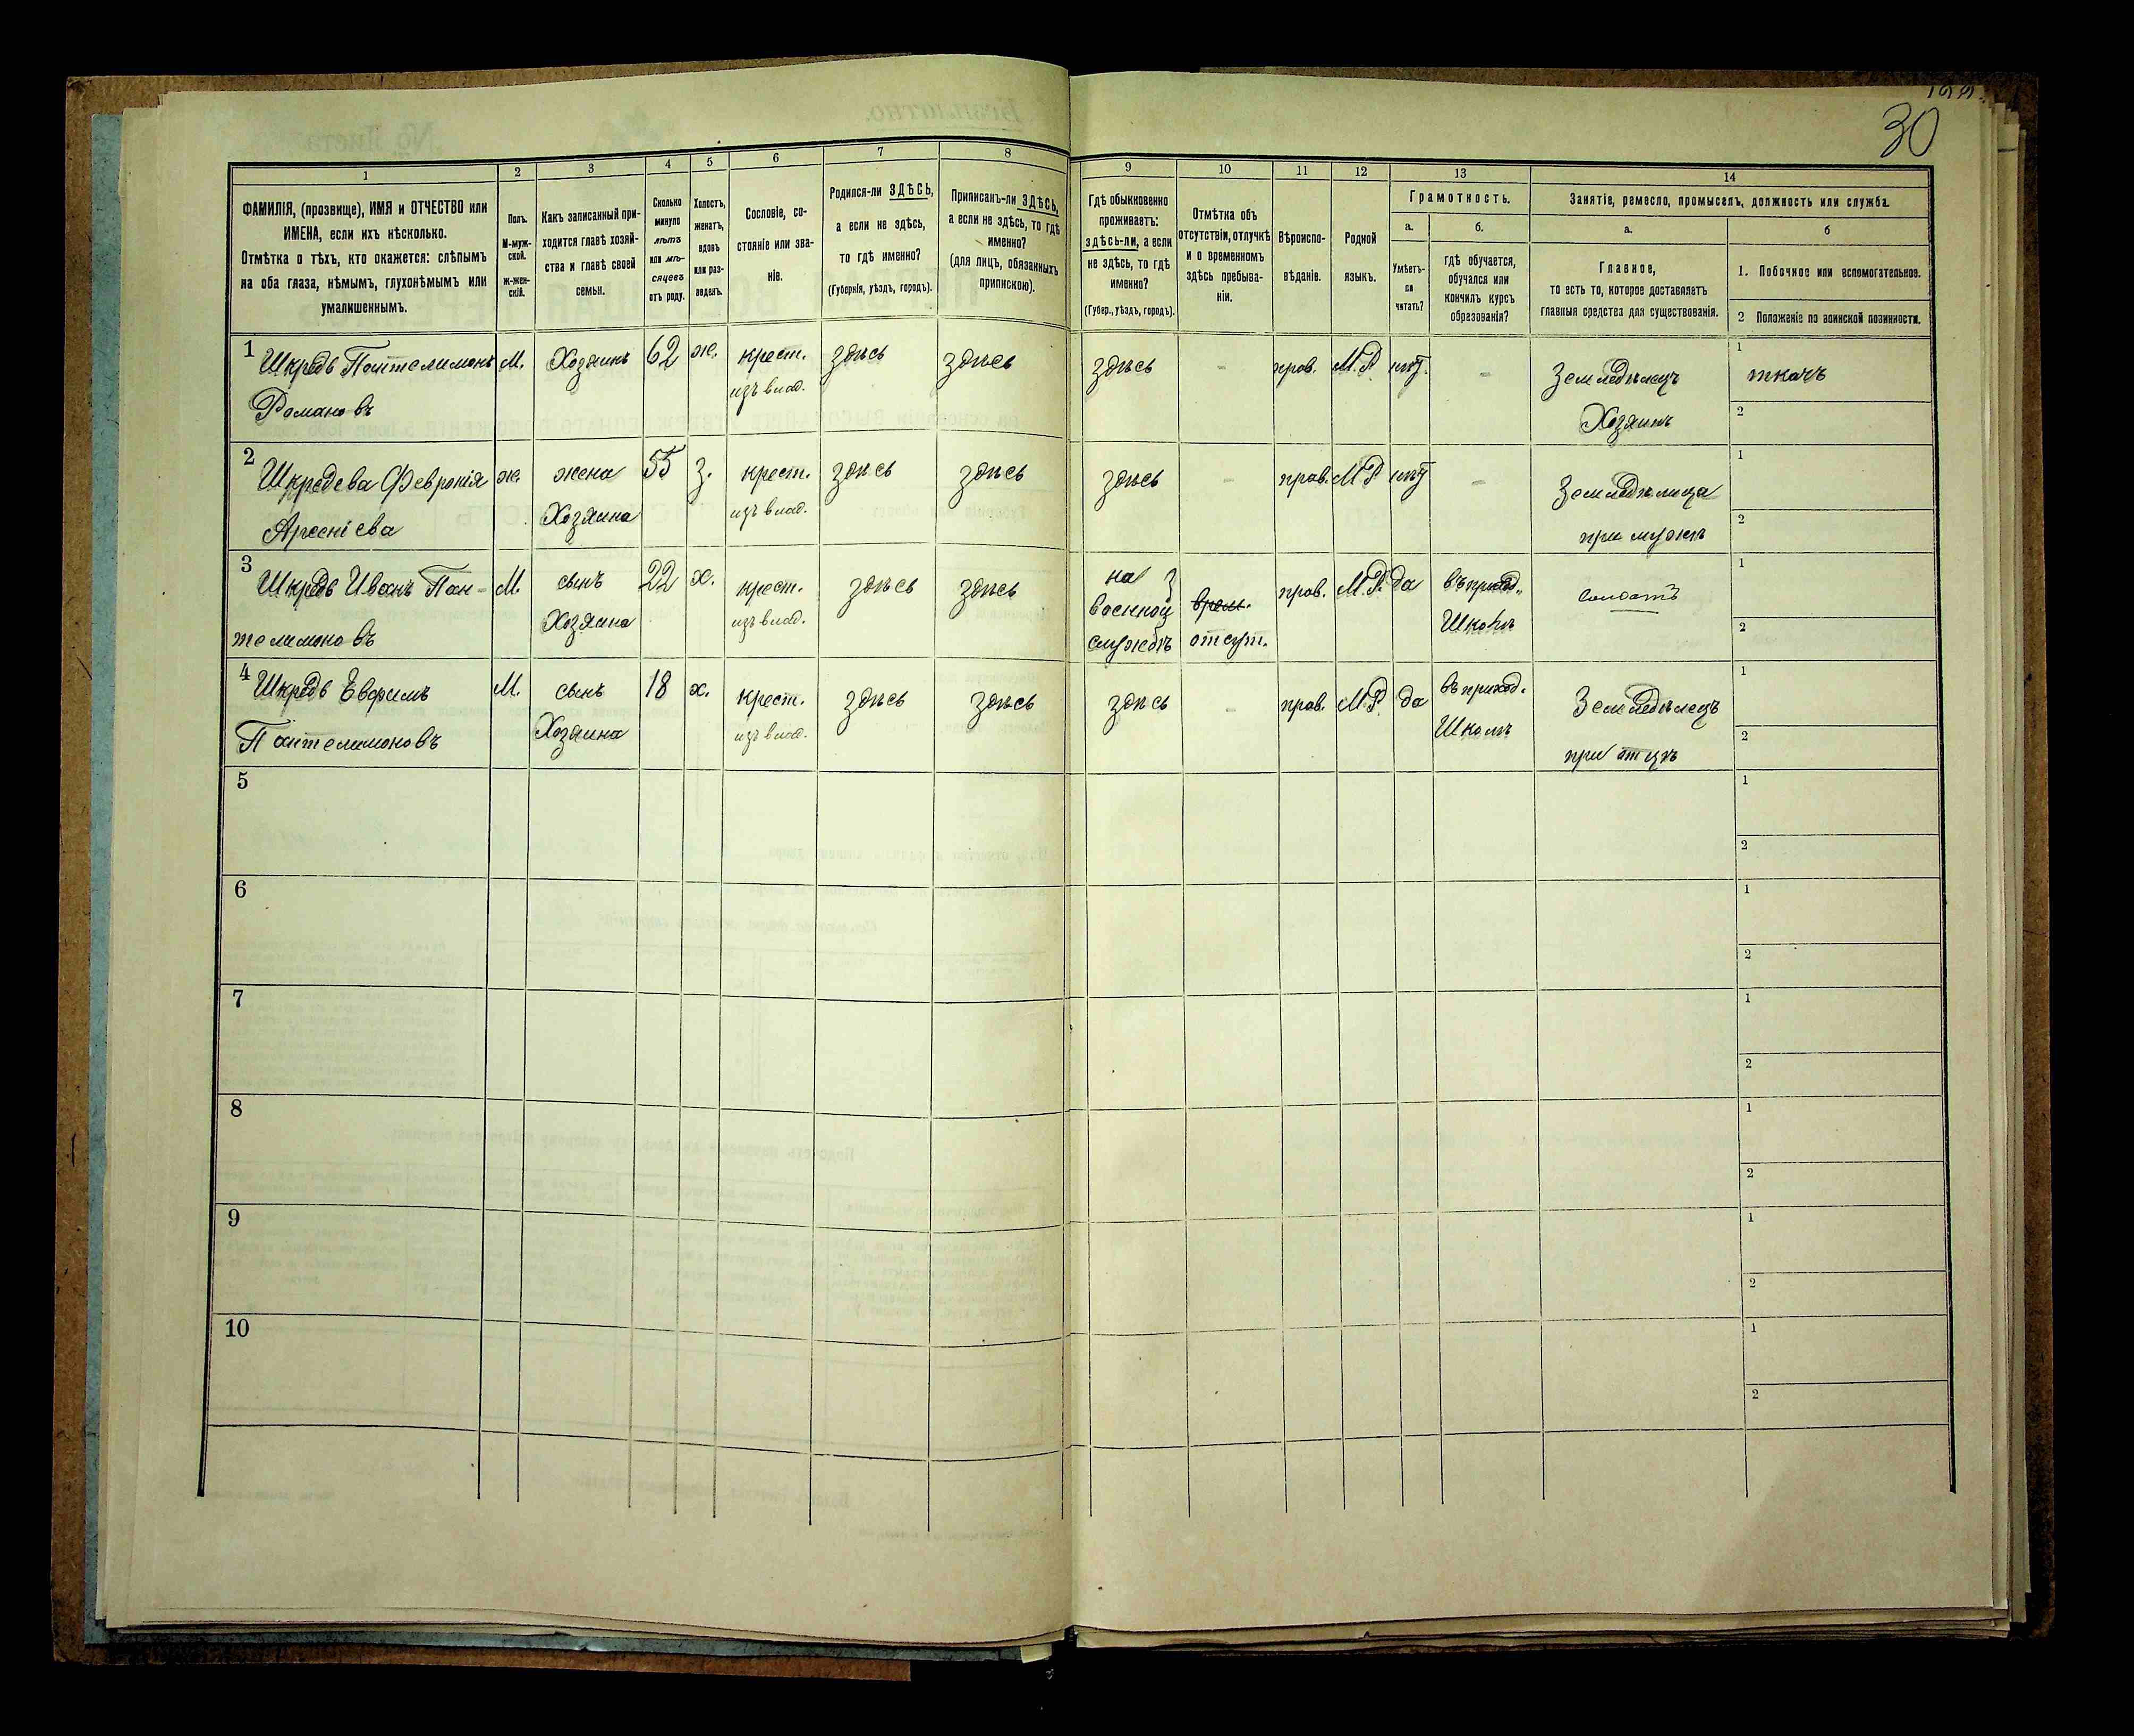 30
1 2 3 4 5 6 7 8 9 10 11 12 13 14
ФАМИЛІЯ, (прозвище), ИМЯ и ОТЧЕСТВО или
ИМЕНА, если ихъ нѣсколько.
Отмѣтка о тѣхъ, кто окажется: слѣпымъ
на оба глаза, нѣмымъ, глухонѣмымъ или
умалишеннымъ.
Полъ.
М-муж-
ской.
Ж-жен-
скій.
Какъ записанный при-
ходится главѣ хозяй-
ства и главѣ своей
семьи.
Сколько
минуло
лѣтъ
или мѣ-
сяцевъ
отъ роду.
Холостъ,
женатъ,
вдовъ
или раз-
веденъ.
Сословіе, со-
стояніе или зва-
ніе.
Родился-ли ЗДѢСЬ,
а если не здѣсь,
то гдѣ именно?
(Губернія, уѣздъ, городъ).
Приписанъ-ли ЗДѢСЬ,
а если не здѣсь, то гдѣ
именно?
(для лицъ, обязанныхъ
припискою).
Гдѣ обыкновенно
проживаетъ:
здѣсь-ли, а если
не здѣсь, то гдѣ
именно?
(Губер., уѣздъ, городъ).
Отмѣтка объ
отсутствіи, отлучкѣ
и о временномъ
здѣсь пребыва-
ніи.
Вѣроиспо-
вѣданіе.
Родной
языкъ.
Грамотность.
а.
Умѣетъ-
ли
читать?
б.
гдѣ обучается,
обучался или
кончилъ курсъ
образованія?
Занятіе, ремесло, промыселъ, должность или служба.
а.
Главное,
то есть то, которое доставляетъ
главныя средства для существованія.
б
1. Побочное или вспомогательное.
2 Положеніе по воинской повинности.
1 Шкредь Пантелимонъ М. Хозяинъ 62 ж. крест. здѣсь здѣсь здѣсь - прав. М.Р. нѣт. - Земледѣлецъ 1 ткачъ
Романовъ изъ влад. Хозяинъ 2
2 Шкредева Февронія ж. жена 55 з. крест. здѣсь здѣсь здѣсь - прав. М.Р нѣт - Земледѣлица 1
Арсеніева Хозяина изъ влад. при мужѣ 2
3 Шкредь Иванъ Пан- М. сынъ 22 х. крест. здѣсь здѣсь на военной службѣ врем. прав. М.Р. да въ приход. солдатъ 1
телимоновъ Хозяина изъ влад. отсут. Школѣ 2
4 Шкредь Евфимъ М. сынъ 18 х. крест. здѣсь здѣсь здѣсь - прав. М.Р. да въ приход. Земледѣлецъ 1
Пантелимоновъ Хозяина изъ влад. Школѣ при отцѣ 2
5 1
2
6 1
2
7 1
2
8 1
2
9 1
2
10 1
2